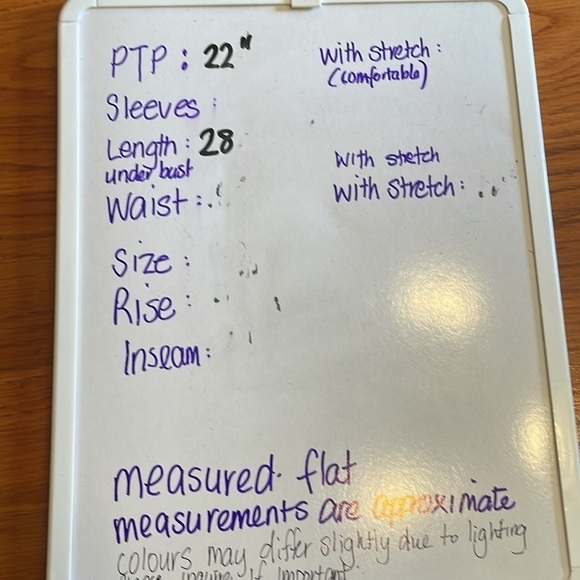 PTP : 22" With stretch :
(comfortable)
Sleeves :
Length : 28
under bust With stretch
Waist : With stretch :
Size :
Rise :
Inseam :
measured. flat
measurements are approximate
colours may differ slightly due to lighting
inquire if important.